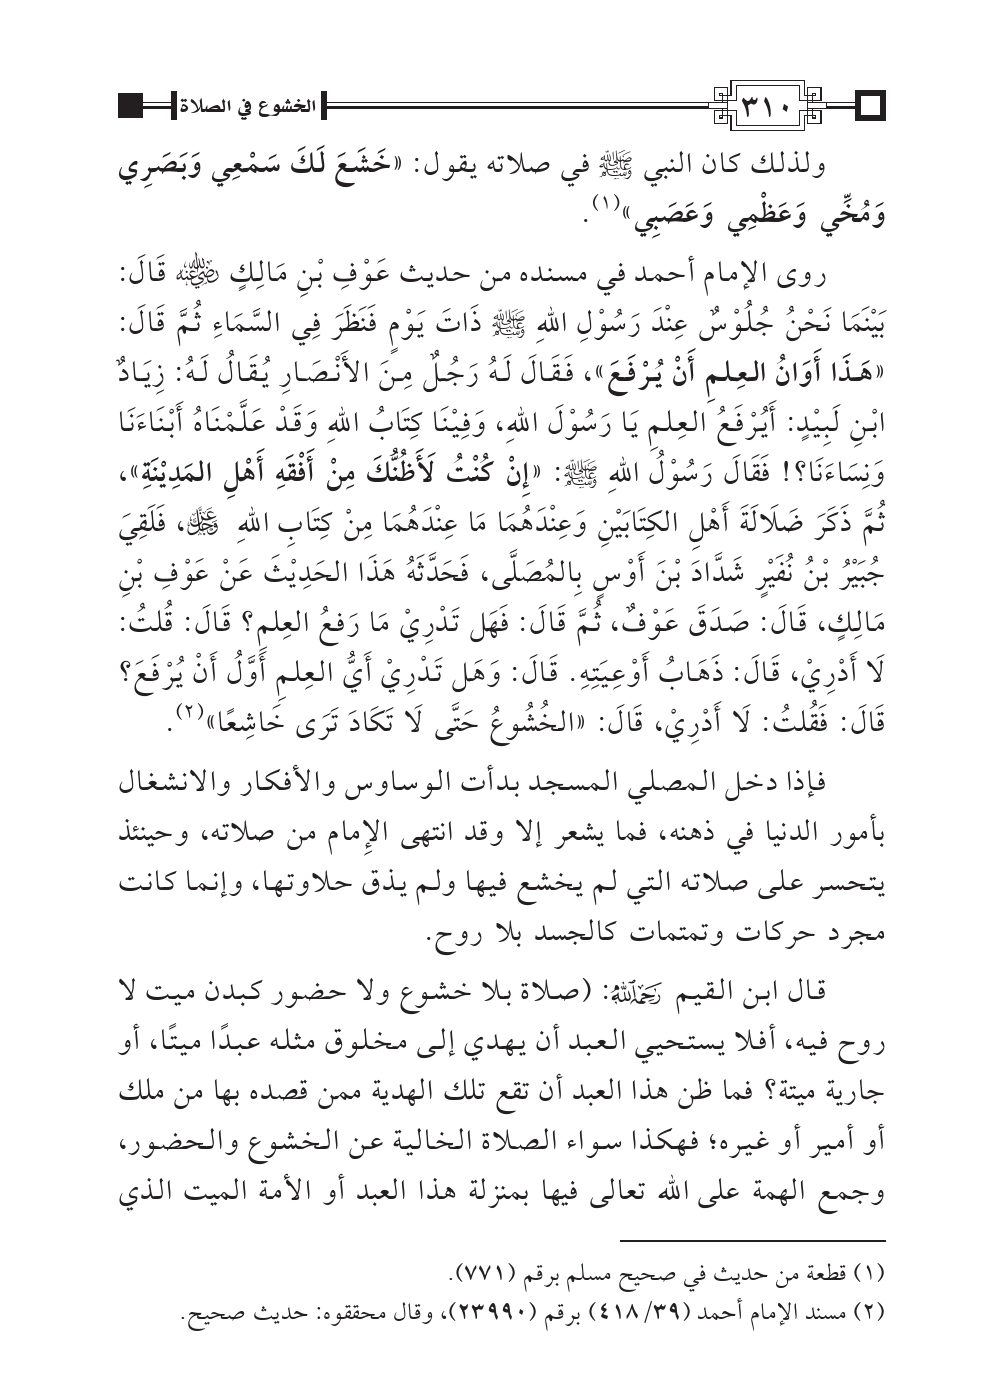 ٣١٠
الخشوع في الصلاة
ولذلك كان النبي ﷺ في صلاته يقول: «خَشَعَ لَكَ سَمْعِي وَبَصَرِي
وَمُخِّي وَعَظْمِي وَعَصَبِي»(١).
روى الإمام أحمد في مسنده من حديث عَوْفِ بْنِ مَالِكٍ رضي الله عنه قَالَ:
بَيْنَمَا نَحْنُ جُلُوْسٌ عِنْدَ رَسُوْلِ اللهِ ﷺ ذَاتَ يَوْمٍ فَنَظَرَ فِي السَّمَاءِ ثُمَّ قَالَ:
«هَذَا أَوَانُ العِلمِ أَنْ يُرْفَعَ»، فَقَالَ لَهُ رَجُلٌ مِنَ الأَنْصَارِ يُقَالُ لَهُ: زِيَادُ
ابْنِ لَبِيْدٍ: أَيُرْفَعُ العِلمِ يَا رَسُوْلَ اللهِ، وَفِيْنَا كِتَابُ اللهِ وَقَدْ عَلَّمْنَاهُ أَبْنَاءَنَا
وَنِسَاءَنَا؟! فَقَالَ رَسُوْلُ اللهِ ﷺ: «إِنْ كُنْتُ لَأَظُنُّكَ مِنْ أَفْقَهِ أَهْلِ المَدِيْنَةِ»،
ثُمَّ ذَكَرَ ضَلَالَةَ أَهْلِ الكِتَابَيْنِ وَعِنْدَهُمَا مَا عِنْدَهُمَا مِنْ كِتَابِ اللهِ عز وجل، فَلَقِيَ
جُبَيْرُ بْنُ نُفَيْرٍ شَدَّادَ بْنَ أَوْسٍ بِالمُصَلَّى، فَحَدَّثَهُ هَذَا الحَدِيْثَ عَنْ عَوْفِ بْنِ
مَالِكٍ، قَالَ: صَدَقَ عَوْفٌ، ثُمَّ قَالَ: فَهَل تَدْرِيْ مَا رَفعُ العِلمِ؟ قَالَ: قُلتُ:
لَا أَدْرِيْ، قَالَ: ذَهَابُ أَوْعِيَتِهِ. قَالَ: وَهَل تَدْرِيْ أَيُّ العِلمِ أَوَّلُ أَنْ يُرْفَعَ؟
قَالَ: فَقُلتُ: لَا أَدْرِيْ، قَالَ: «الخُشُوعُ حَتَّى لَا تَكَادَ تَرَى خَاشِعًا»(٢).
فإذا دخل المصلي المسجد بدأت الوساوس والأفكار والانشغال
بأمور الدنيا في ذهنه، فما يشعر إلا وقد انتهى الإِمام من صلاته، وحينئذ
يتحسر على صلاته التي لم يخشع فيها ولم يذق حلاوتها، وإنما كانت
مجرد حركات وتمتمات كالجسد بلا روح.
قال ابن القيم رحمه الله: (صلاة بلا خشوع ولا حضور كبدن ميت لا
روح فيه، أفلا يستحيي العبد أن يهدي إلى مخلوق مثله عبدًا ميتًا، أو
جارية ميتة؟ فما ظن هذا العبد أن تقع تلك الهدية ممن قصده بها من ملك
أو أمير أو غيره؛ فهكذا سواء الصلاة الخالية عن الخشوع والحضور،
وجمع الهمة على الله تعالى فيها بمنزلة هذا العبد أو الأمة الميت الذي
(١) قطعة من حديث في صحيح مسلم برقم (٧٧١).
(٢) مسند الإمام أحمد (٣٩/ ٤١٨) برقم (٢٣٩٩٠)، وقال محققوه: حديث صحيح.